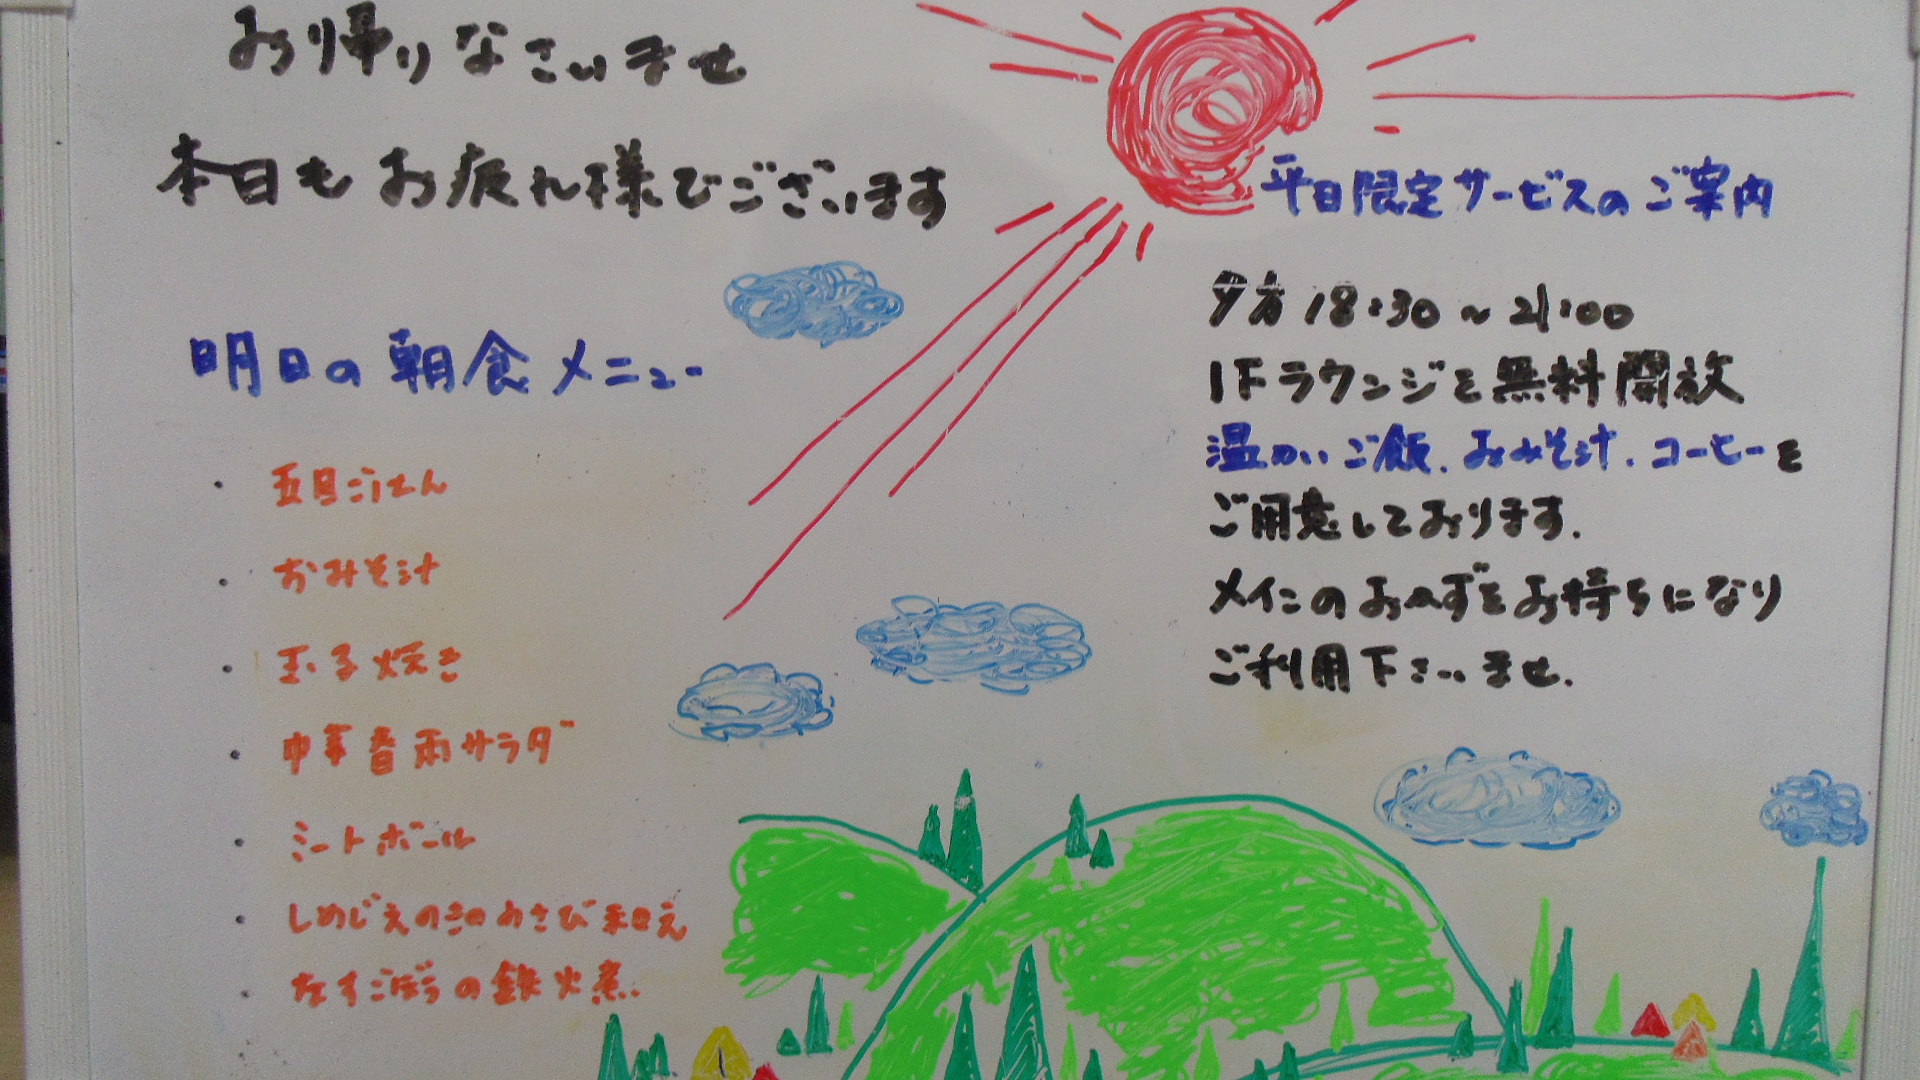 お帰りなさいませ
本日もお疲れ様でございます
明日の朝食メニュー
・五目ごはん
・おみそ汁
・玉子焼き
・中華春雨サラダ
・ミートボール
・しめじえのきのわさび和え
・なすごぼうの鉄火煮
平日限定サービスのご案内
夕方18:30~21:00
1Fラウンジを無料開放
温かいご飯、おみそ汁、コーヒーを
ご用意しております。
メインのおかずをお持ちになり
ご利用下さいませ。